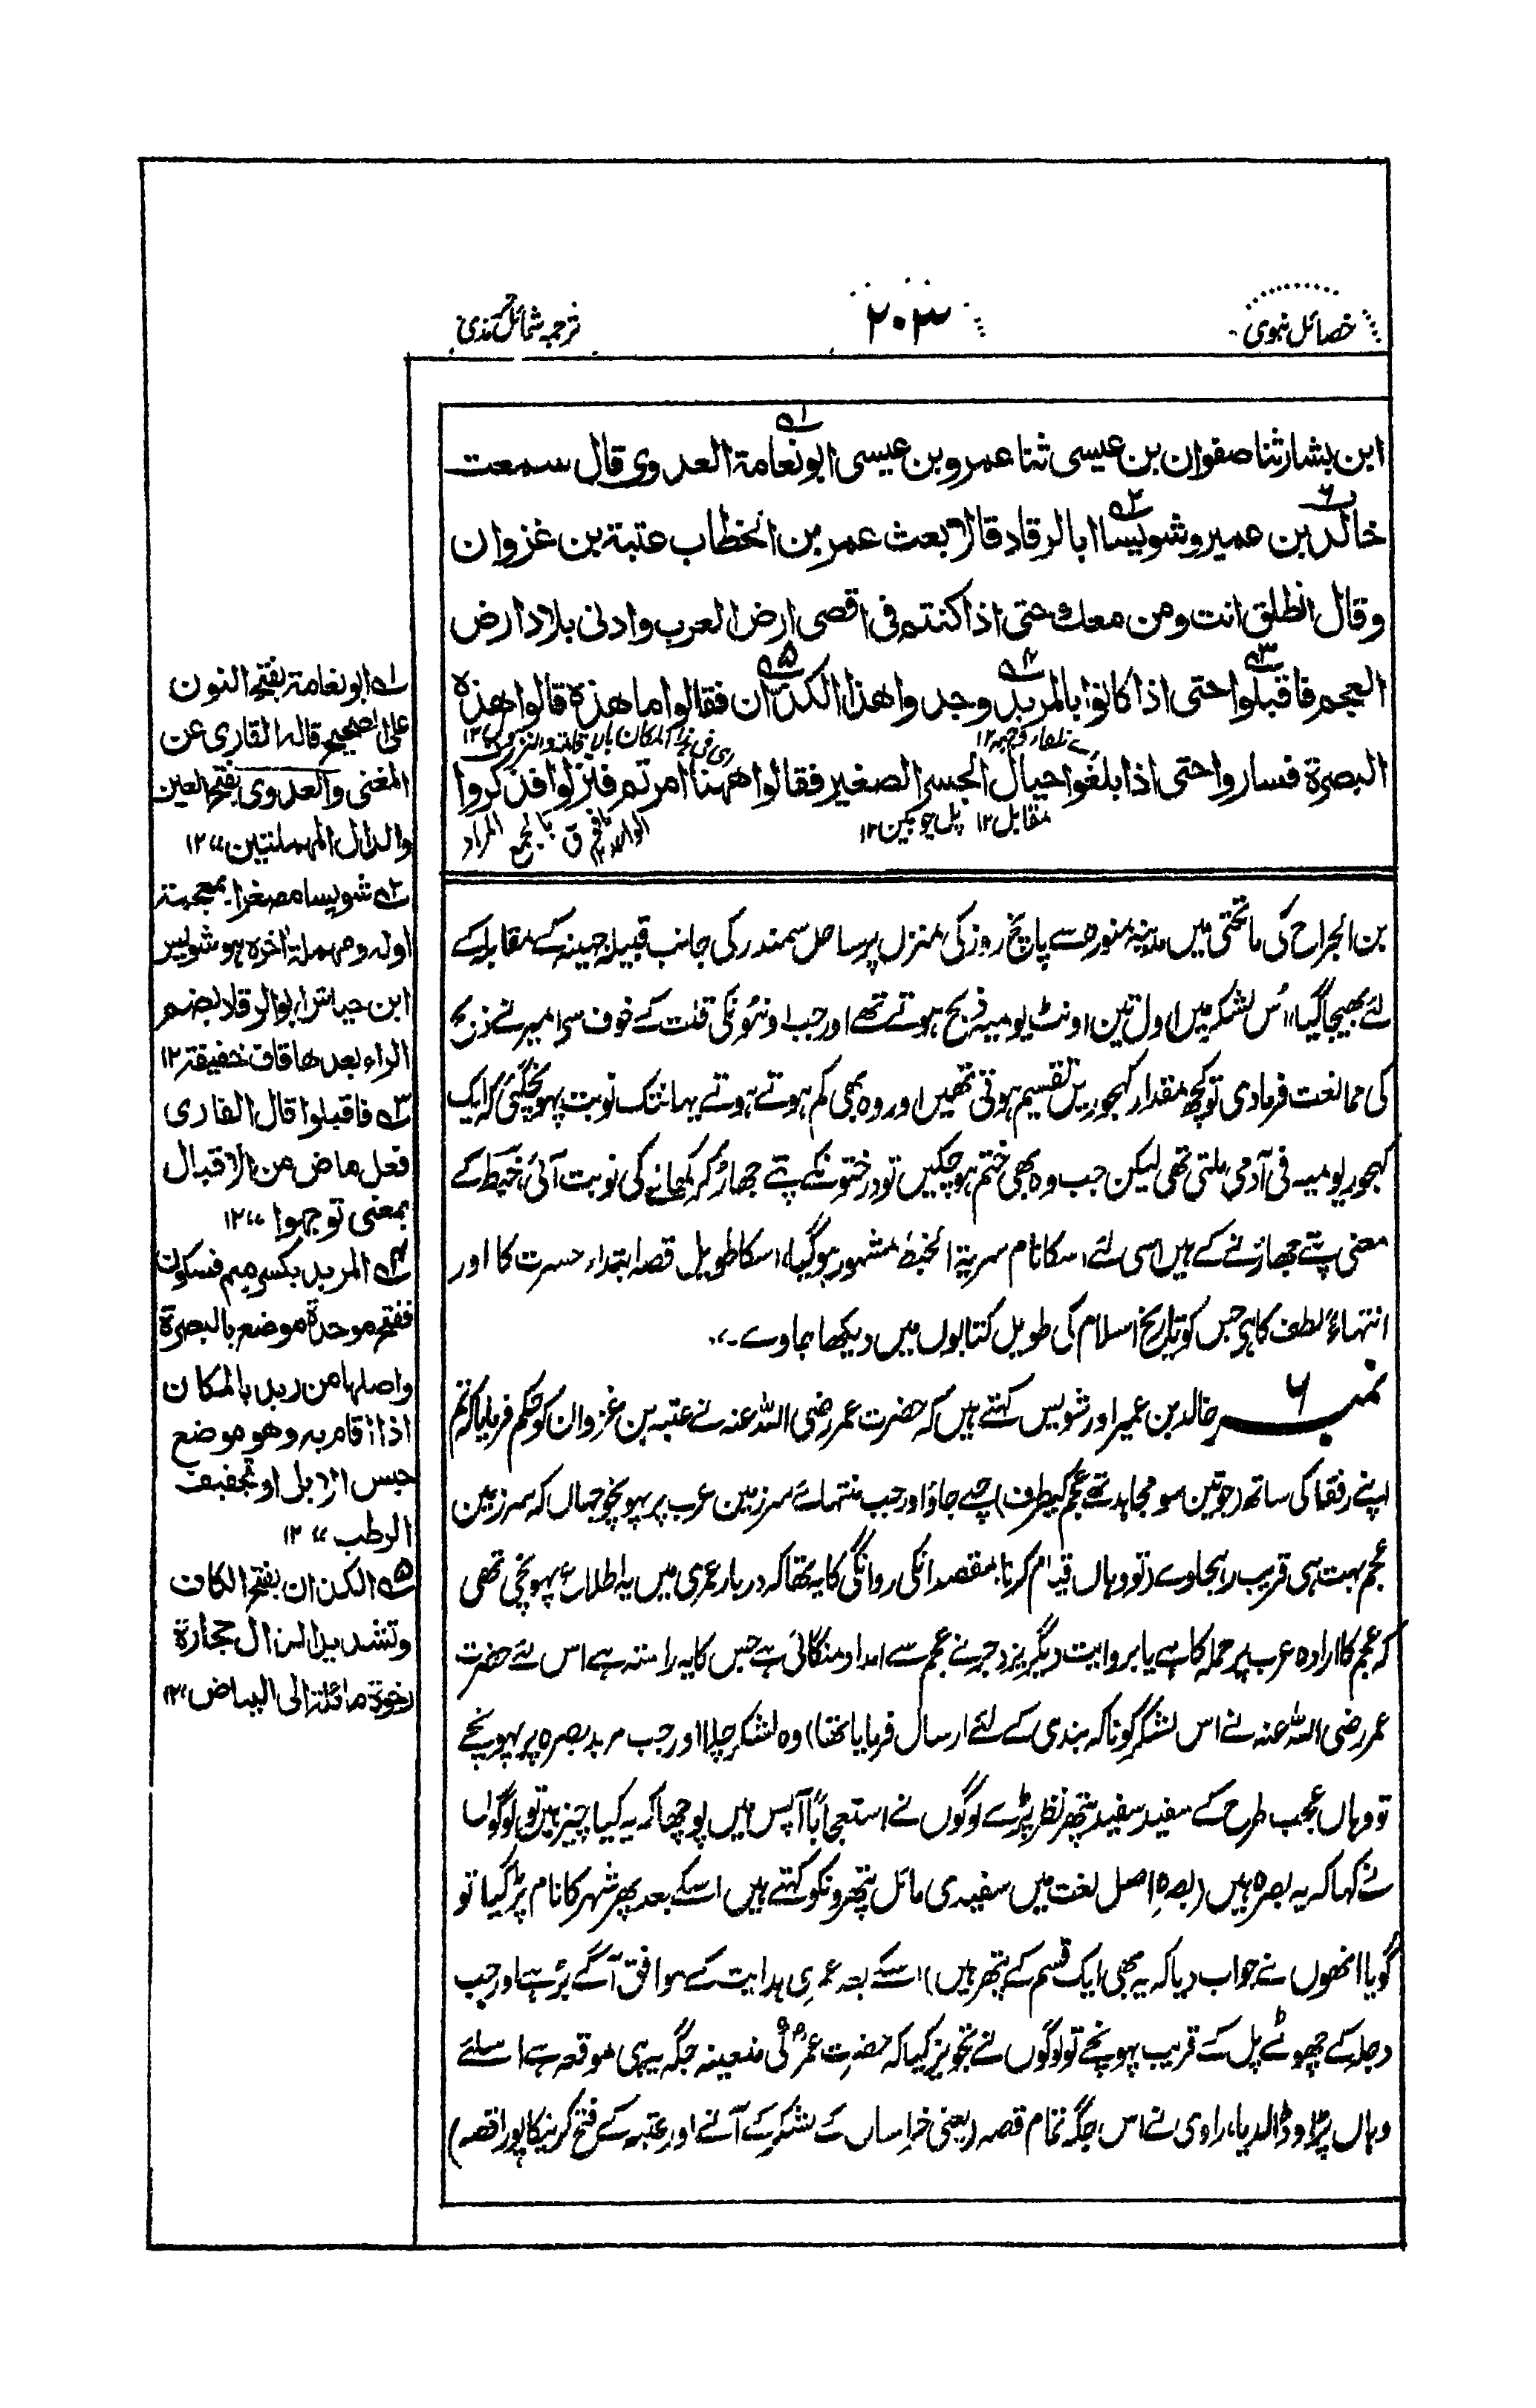 خصائل نبوی
۲۰۳
ترجمہ شمائل ترمذی
ابن بشار ثنا صفوان بن عيسى ثنا عمرو بن عيسى ابو نعامة العدوى قال سمعت
خالد بن عمير وشويسا ابا الرقاد قالا بعث عمر بن الخطاب عتبة بن غزوان
وقال انطلق انت ومن معك حتى اذا كنتم فى اقصى ارض العرب وادنى بلاد ارض
العجم فاقبلوا حتى اذا كانوا بالمربد وجدوا هذا الكذان فقالوا ما هذه قالوا هذه
البصرة فساروا حتى اذا بلغوا حيال الجسر الصغير فقالوا ههنا امرتم فنزلوا فذكروا
مقابل ۱۲ پل چوبین ۱۲
بن الجراح کی ماتحتی میں مدینہ منورہ سے پانچ روز کی منزل پر ساحل سمندر کی جانب قبیلہ جہینہ کے مقابلہ کے
لئے بھیجا گیا، اُس لشکر میں اول تین اونٹ یومیہ ذبح ہوتے تھے اور جب اونٹونکی قلت کے خوف سے امیر نے ذبح
کی ممانعت فرمادی تو کچھ مقدار کھجوریں تقسیم ہوتی تھیں اور وہ بھی کم ہوتے ہوتے یہانتک نوبت پہونچگئی کہ ایک
کھجور یومیہ فی آدمی ملتی تھی لیکن جب وہ بھی ختم ہوچکیں تو درختونکے پتے جھاڑ کر کھانے کی نوبت آئی، خبط کے
معنی پتے جھاڑنے کے ہیں اسی لئے اسکا نام سریۃ الخبط مشہور ہوگیا، اسکا طویل قصہ ابتداء حسرت کا اور
انتہاءً لطف کا ہی جس کو تاریخ اسلام کی طویل کتابوں میں دیکھا جاوے۔
نمبر ۶ خالد بن عمیر اور شویس کہتے ہیں کہ حضرت عمر رضی اللہ عنہ نے عتبہ بن غزوان کو حکم فرمایا کہ تم
اپنے رفقا کی ساتھ (جو تین سو مجاہد تھے عجم کیطرف) چلے جاؤ اور جب منتہائے سرزمین عرب پر پہونچو جہاں کہ سرزمین
عجم بہت ہی قریب رہجاوے (تو وہاں قیام کرنا، مقصد انکی روانگی کا یہ تھا کہ دربار عمری میں یہ اطلاع پہونچی تھی
کہ عجم کا ارادہ عرب پر حملہ کا ہے یا بروایت دیگر یزدجرد نے عجم سے امداد منگائی ہے جس کا یہ راستہ ہے اس لئے حضرت
عمر رضی اللہ عنہ نے اس لشکر کو ناکہ بندی کے لئے ارسال فرمایا تھا) وہ لشکر چلا اور جب مربد بصرہ پر پہونچے
تو وہاں عجب طرح کے سفید سفید پتھر نظر پڑے لوگوں نے استعجاباً آپس میں پوچھا کہ یہ کیا چیز ہیں تو لوگوں
نے کہا کہ یہ بصرہ ہیں (بصرہ اصل لغت میں سفیدی مائل پتھرونکو کہتے ہیں اسکے بعد پھر شہر کا نام پڑگیا تو
گویا انھوں نے جواب دیا کہ یہ بھی ایک قسم کے پتھر ہیں) اسکے بعد عمری ہدایت کے موافق آگے بڑہے اور جب
دجلہ کے چھوٹے پل کے قریب پہونچے تو لوگوں نے تجویز کیا کہ حضرت عمر کی متعینہ جگہ یہی موقعہ ہے اسلئے
وہاں پڑاو ڈالدیا، راوی نے اس جگہ تمام قصہ (یعنی خراسان کے لشکر کے آنے اور عتبہ کے فتح کرنیکا پورا قصہ)
۱ ابو نعامة بفتح النون
على الصحيح قاله القارى عن
المغنى والعدوى بفتح العين
والدال المهملتين ۱۲
۲ شويسا مصغرا۔ بمعجمة
اوله ومهملة اخره هو شويس
ابن حياش ابو الرقاد بضم
الراء بعدها قاف خفيفة ۱۲
۳ فاقبلوا قال القارى
فعل ماض من الاقبال
بمعنى توجهوا ۱۲
۴ المربد بكسر ميم فسكون
ففتح موحدة موضع بالبصرة
واصلها من ربد بالمكان
اذا اقام به وهو موضع
حبس الابل او تجفيف
الرطب ۱۲
۵ الكذان بفتح الكاف
وتشديد الذال حجارة
رخوة مائلة الى البياض ۱۲